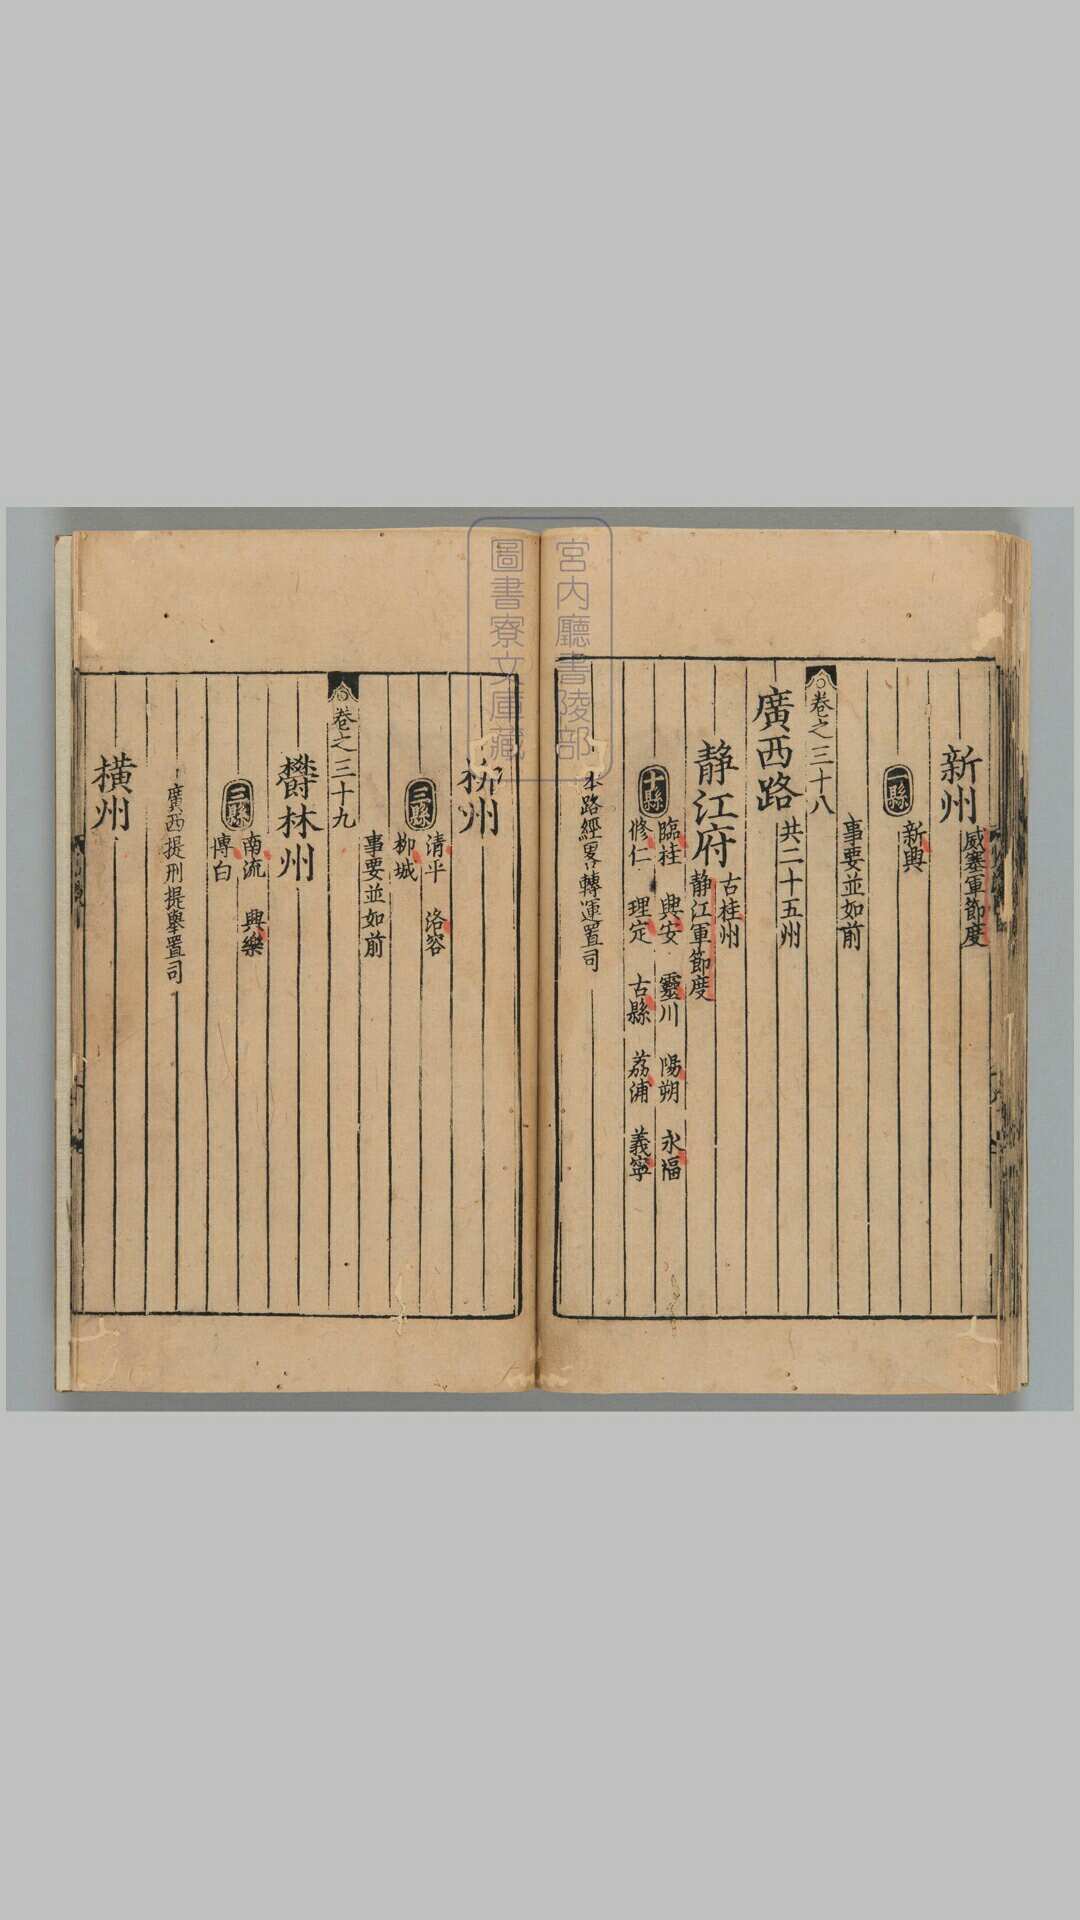 新州威塞軍節度
一縣 新興
事要並如前
卷之三十八
廣西路 共二十五州
靜江府 古桂州
靜江軍節度
十縣 臨桂 興安 靈川 陽朔 永福
修仁 理定 古縣 荔浦 義寧
本路經畧轉運置司
柳州
三縣 清平 洛容
柳城
事要並如前
卷之三十九
欝林州
三縣 南流 興樂
博白
廣西提刑提舉置司
橫州
宮内廳書陵部
圖書寮文庫藏